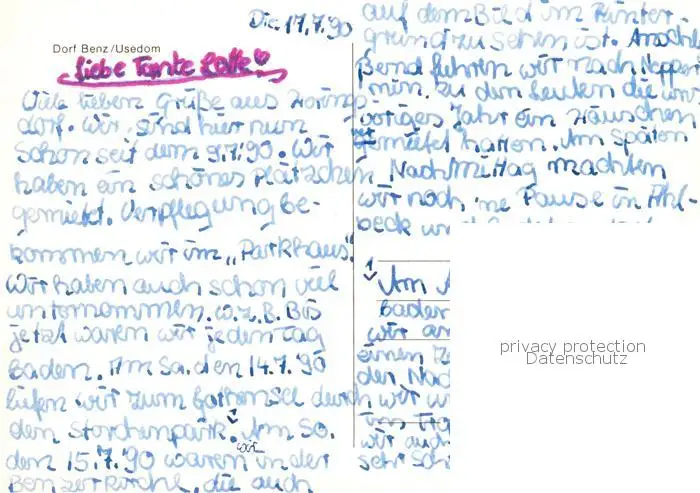 Die. 17.7.90
Dorf Benz/Usedom
Liebe Tante Lotte
Viele lieben Grüße aus
dorf. Wir sind hier nun
schon seit dem 9.7.90. Wir
haben ein schönes Plätzchen
gemietet. Verpflegung be-
kommen wir im „Parkhaus".
Wir haben auch schon viel
unternommen. w.z.B. Bis
jetzt waren wir jeden Tag
baden. Am Sa. den 14.7.90
liefen wir zum Gothensee durch
den Storchenpark. Am So.
den 15.7.90 waren wir in der
Benzer Kirche, die auch
auf dem Bild im Hinter-
grund zu sehen ist. Anschl.
fuhren wir nach
min. zu den Leuten die wir
voriges Jahr ein Häuschen
gemietet hatten. Am späten
Nachmittag machten
wir noch 'ne Pause in Ahl-
beck
Am
baden
wir
einen
der
wir
im
wir auch
sehr
privacy protection
Datenschutz